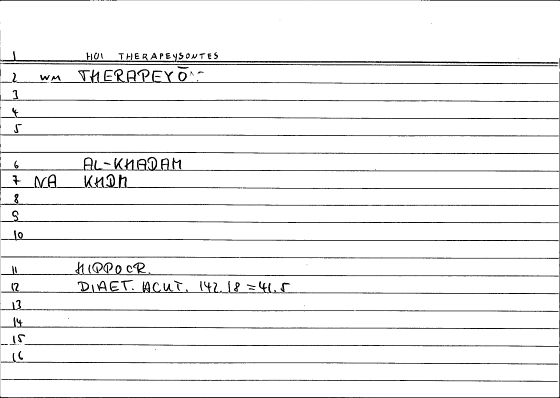 1 HOI THERAPEYSONTES
2 WM THERAPEYŌ
3
4
5
6 AL-KHADAM
7 NA KHDM
8
9
10
11 HIPPOCR.
12 DIAET. ACUT. 142.18 = 41.5
13
14
15
16